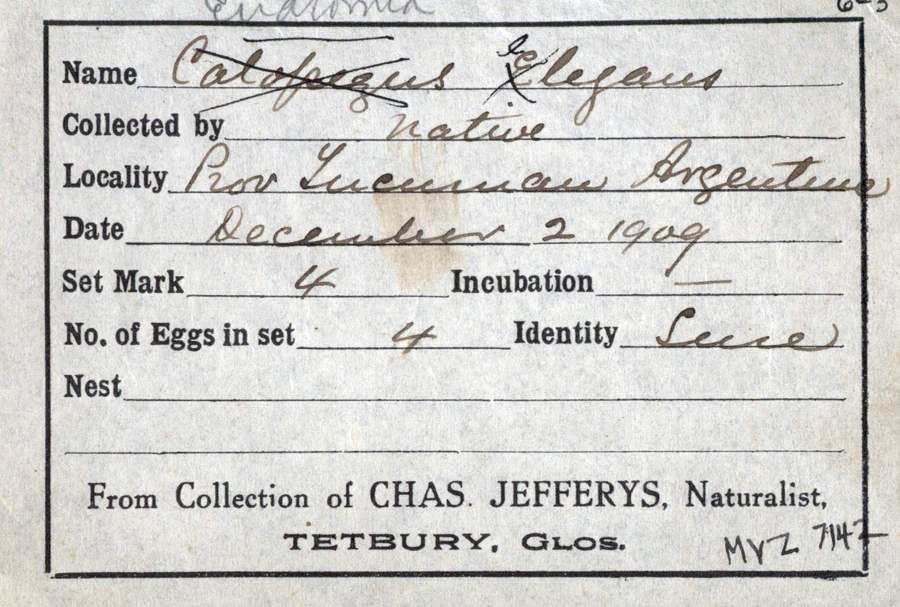 Eudromia 6-3
Name Calopezus e Elegans
Collected by native
Locality Prov Tucuman Argentina
Date December 2 1909
Set Mark 4 Incubation —
No. of Eggs in set 4 Identity Sure
Nest
From Collection of CHAS. JEFFERYS, Naturalist,
TETBURY, GLOS.
MVZ 7142